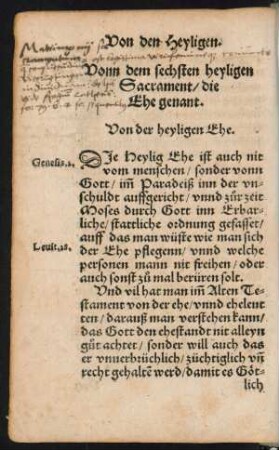 Von den Heyligen.
Vonn dem sechsten heyligen
Sacrament/ die
Ehe genant.
Von der heyligen Ehe.
Genesis.2.
DJe Heylig Ehe ist auch nit
vom menschen/ sonder vonn
Gott/ im̃ Paradeiß inn der vn-
schuldt auffgericht/ vnnd zůr zeit
Moses durch Gott inn Erbar-
liche/ stattliche ordnung gefasset/
auff das man wüste wie man sich
der Ehe pflegenn/ vnnd welche
personen mann nit freihen/ oder
auch sonst zů mal berüren solt.
Leuit.18.
Vnd vil hat man im̃ Alten Te-
stament von der ehe/ vnnd eheleut
ten/ darauß man verstehen kann/
das Gott den ehestandt nit alleyn
gůt achtet/ sonder will auch das
er vnuerbrüchlich/ züchtiglich vn̄
recht gehaltẽ werd/ damit es Göt-
lich